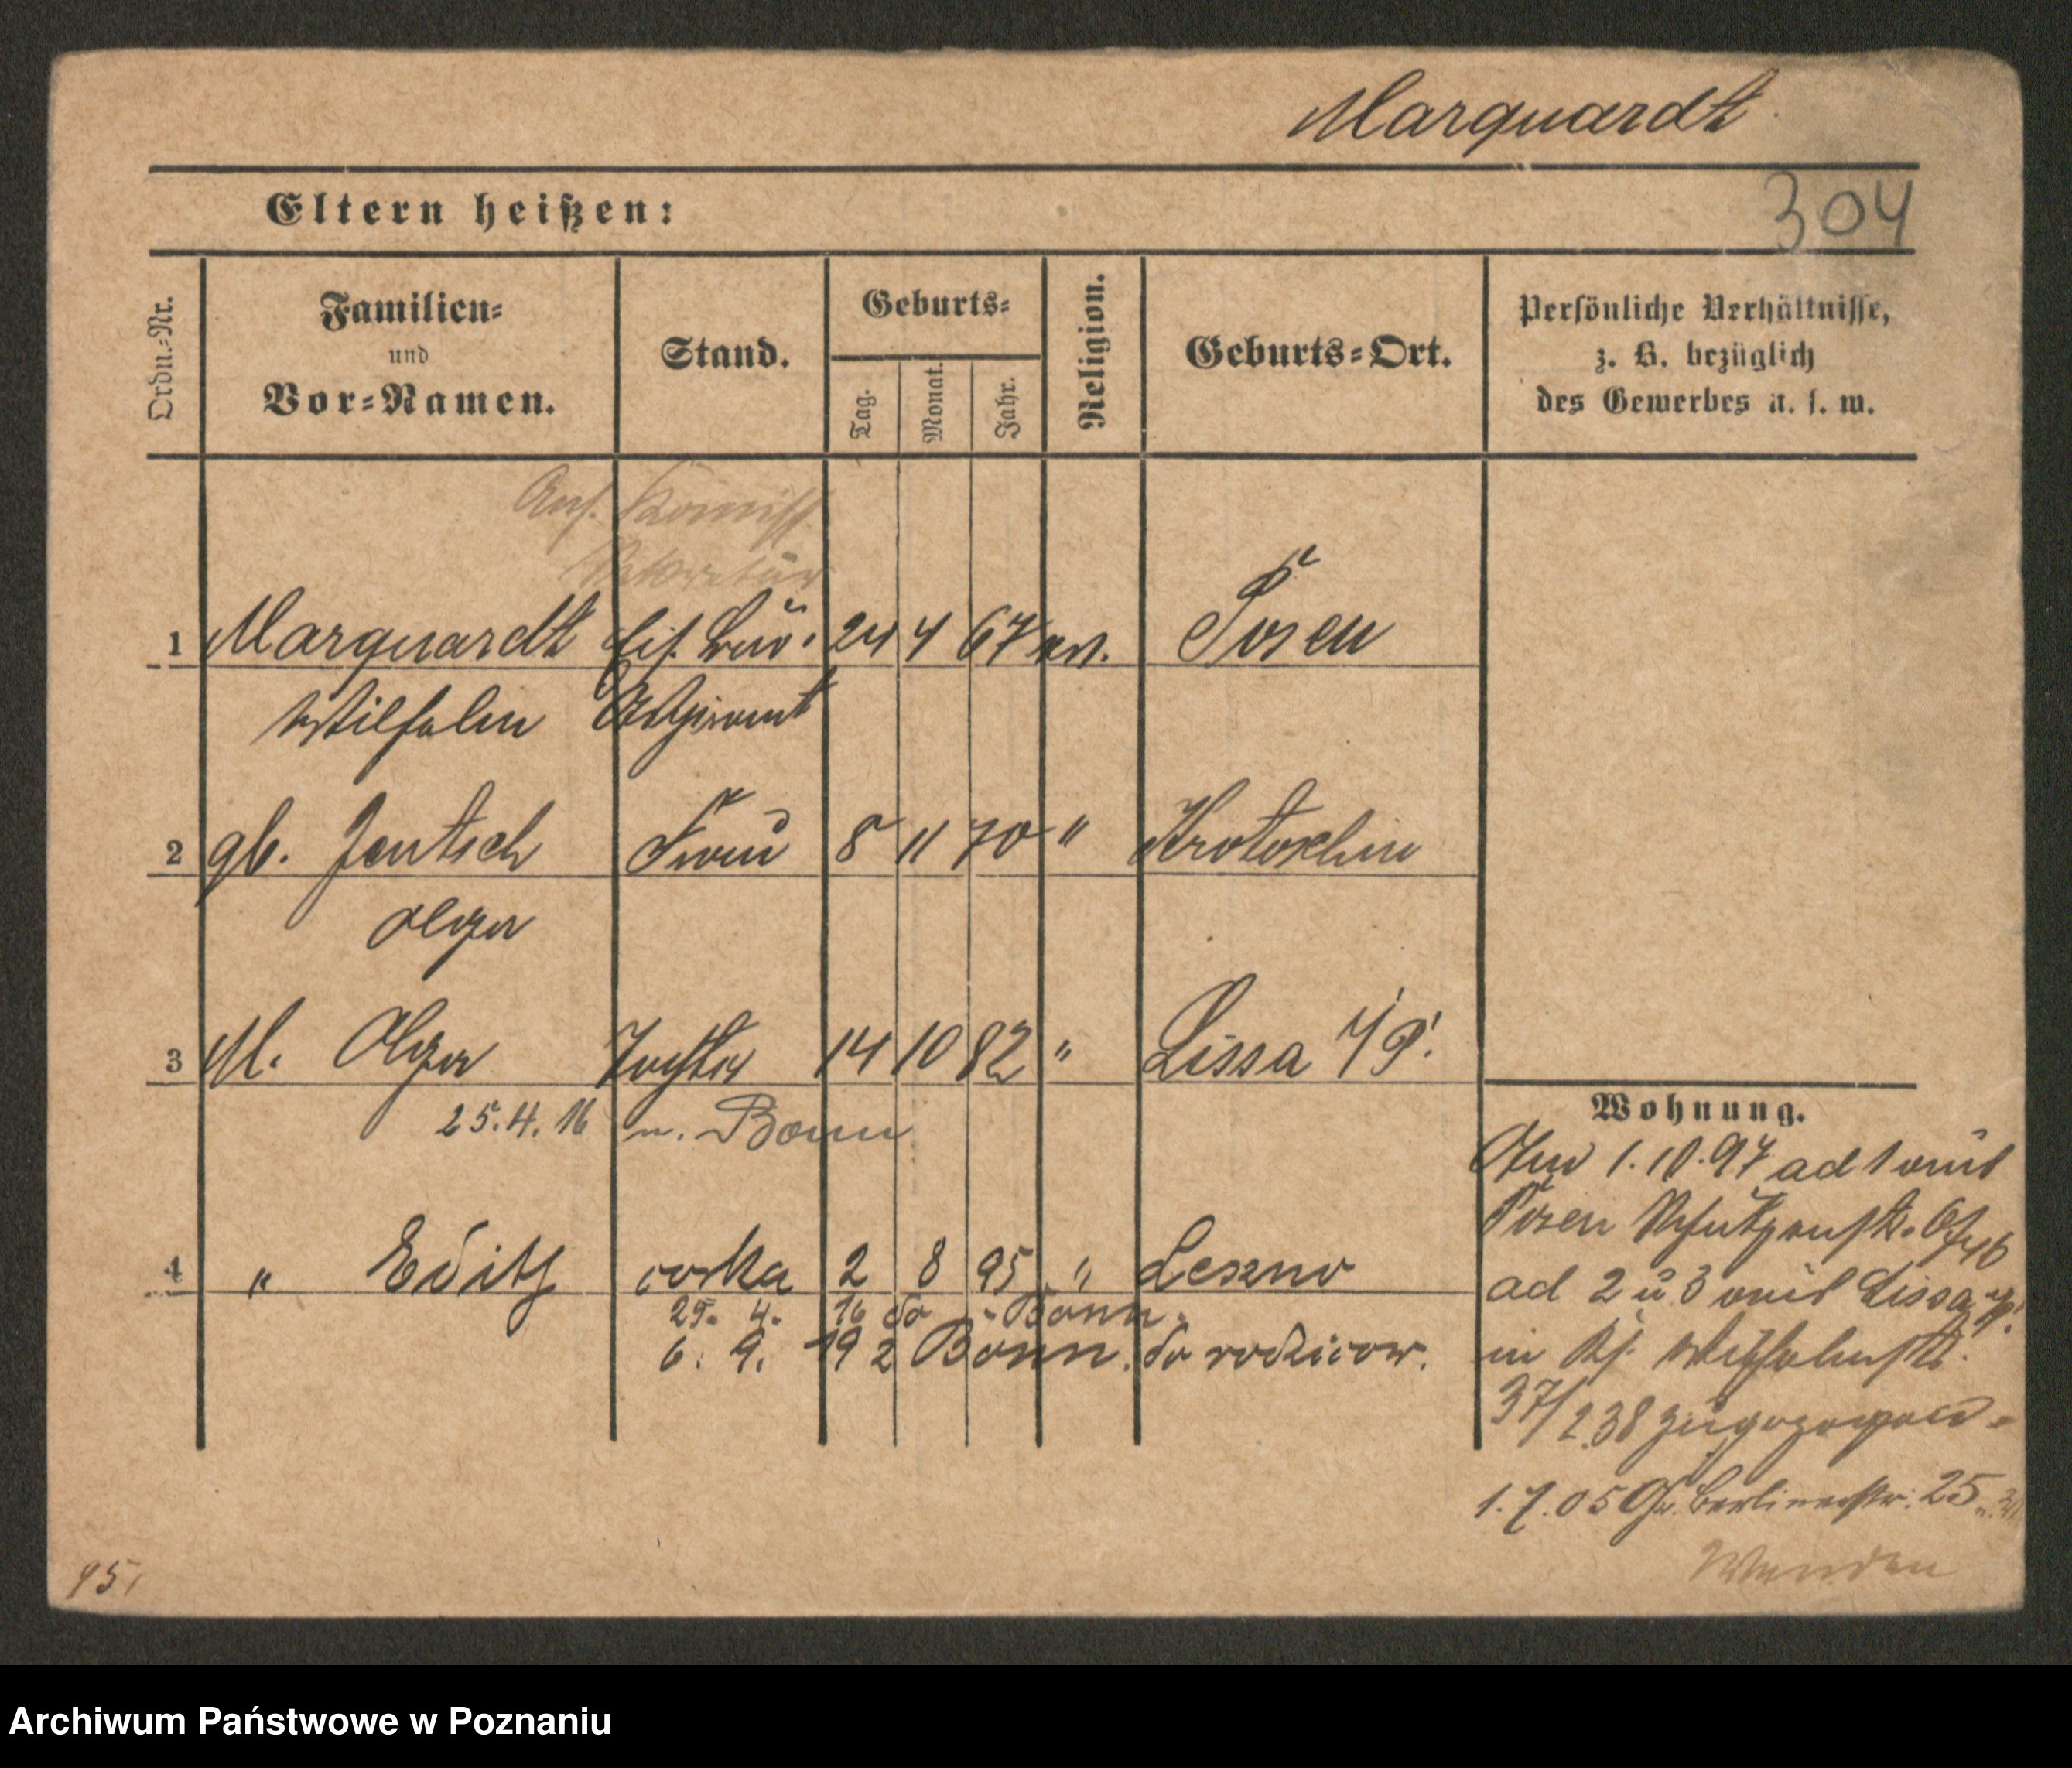 Marquardt
304
Eltern heißen:
Ordn.-Nr.
Familien-
und
Vor-Namen.
Stand.
Geburts-
Tag.
Monat.
Jahr.
Religion.
Geburts-Ort.
Persönliche Verhältnisse,
z. B. bezüglich
des Gewerbes u. s. w.
Ans. Komiss
Sekretär
1 Marquardt Eis. Büro. 24 4 67 ev. Posen
Wilhelm Aspirant
2 gb. Jentsch Frau 8 11 70 " Krotoschin
Olga
3 M. Olga Tochter 14 10 92 " Lissa i/P.
25.4.16 n. Bonn
4 " Edith corka 2 8 95 " Leszno
25. 4. 16 do Bonn.
6. 9. 19 z Bonn. do rodzicow.
Wohnung.
1.10.97 ad 1 aus
Posen Schützenstr.
ad 2 u 3 aus Lissa i/P.
in
37/238 zugezogen
1.7.05 Gr. Berlinerstr. 25
Wenden
95
Archiwum Państwowe w Poznaniu